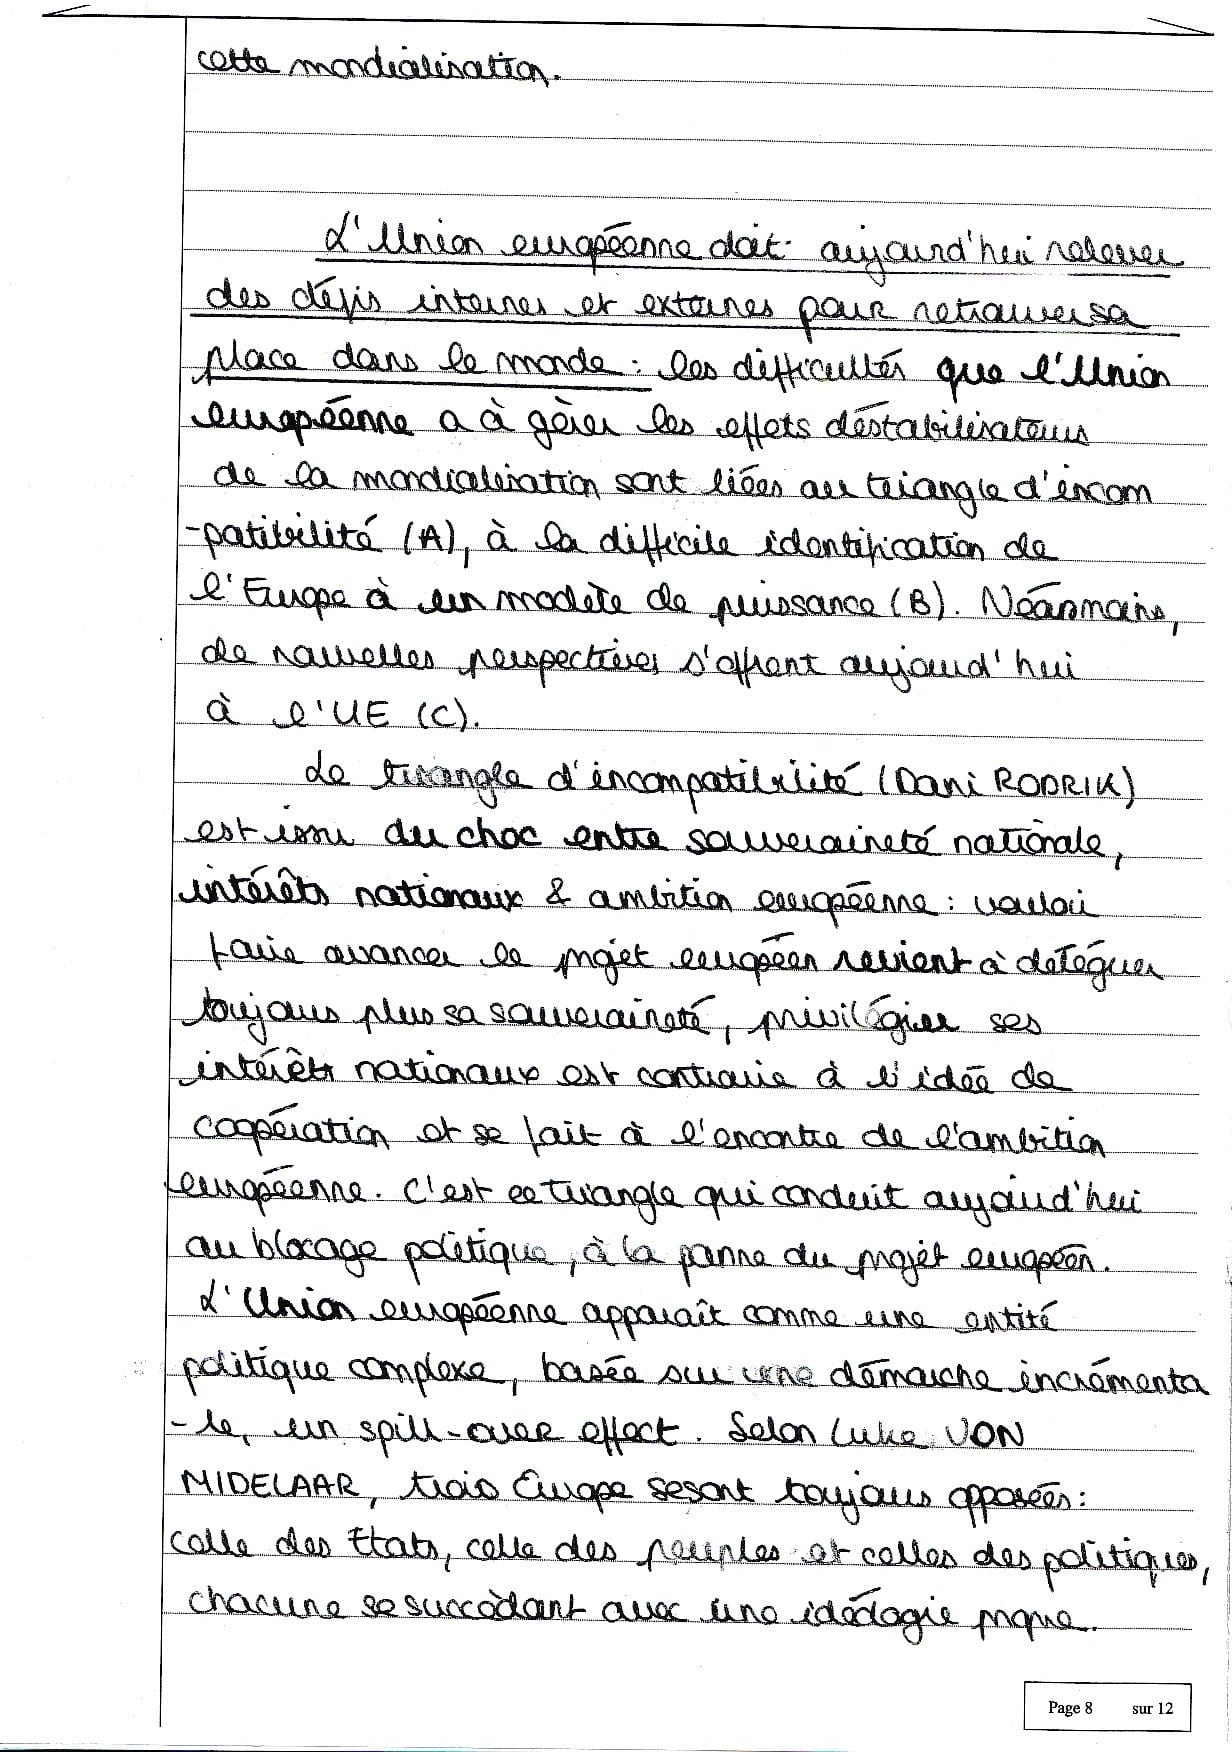 cette mondialisation.
L'Union européenne doit aujourd'hui relever
des défis internes et externes pour retrouver sa
place dans le monde : les difficultés que l'Union
européenne a à gérer les effets déstabilisateurs
de la mondialisation sont liées au triangle d'incom
-patibilité (A), à la difficile identification de
l'Europe à un modèle de puissance (B). Néanmoins,
de nouvelles perspectives s'offrent aujourd'hui
à l'UE (C).
Le triangle d'incompatibilité (Dani RODRIK)
est issu du choc entre souveraineté nationale,
intérêts nationaux & ambition européenne : vouloir
faire avancer le projet européen revient à déléguer
toujours plus sa souveraineté, privilégier ses
intérêts nationaux est contraire à l'idée de
coopération et se fait à l'encontre de l'ambition
européenne. C'est ce triangle qui conduit aujourd'hui
au blocage politique, à la panne du projet européen.
L'Union européenne apparaît comme une entité
politique complexe, basée sur une démarche incrémenta
-le, un spill-over effect. Selon Luke VON
MIDELAAR, trois Europe se sont toujours opposées :
celle des Etats, celle des peuples et celles des politiques,
chacune se succèdant avec une idéologie propre.
Page 8 sur 12